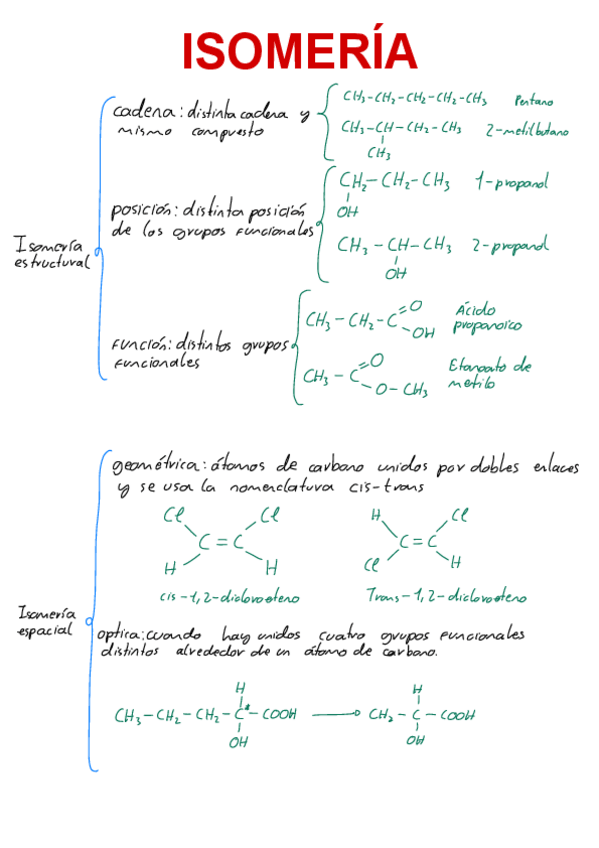 ISOMERÍA
Isomería
estructural
cadena: distinta cadena y
mismo compuesto
CH3-CH2-CH2-CH2-CH3 Pentano
CH3-CH-CH2-CH3 2-metilbutano
CH3
posición: distinta posición
de los grupos funcionales
CH2-CH2-CH3 1-propanol
OH
CH3-CH-CH3 2-propanol
OH
función: distintos grupos
funcionales
CH3-CH2-C=O
-OH
Ácido
propanoico
CH3-C=O
-O-CH3
Etanoato de
metilo
Isomería
espacial
geométrica: átomos de carbono unidos por dobles enlaces
y se usa la nomenclatura cis-trans
Cl Cl
C=C
H H
cis-1,2-dicloroeteno
H Cl
C=C
Cl H
Trans-1,2-dicloroeteno
optica: cuando hay unidos cuatro grupos funcionales
distintos alrededor de un átomo de carbono.
H
CH3-CH2-CH2-C*-COOH
OH
H
CH2-C-COOH
OH